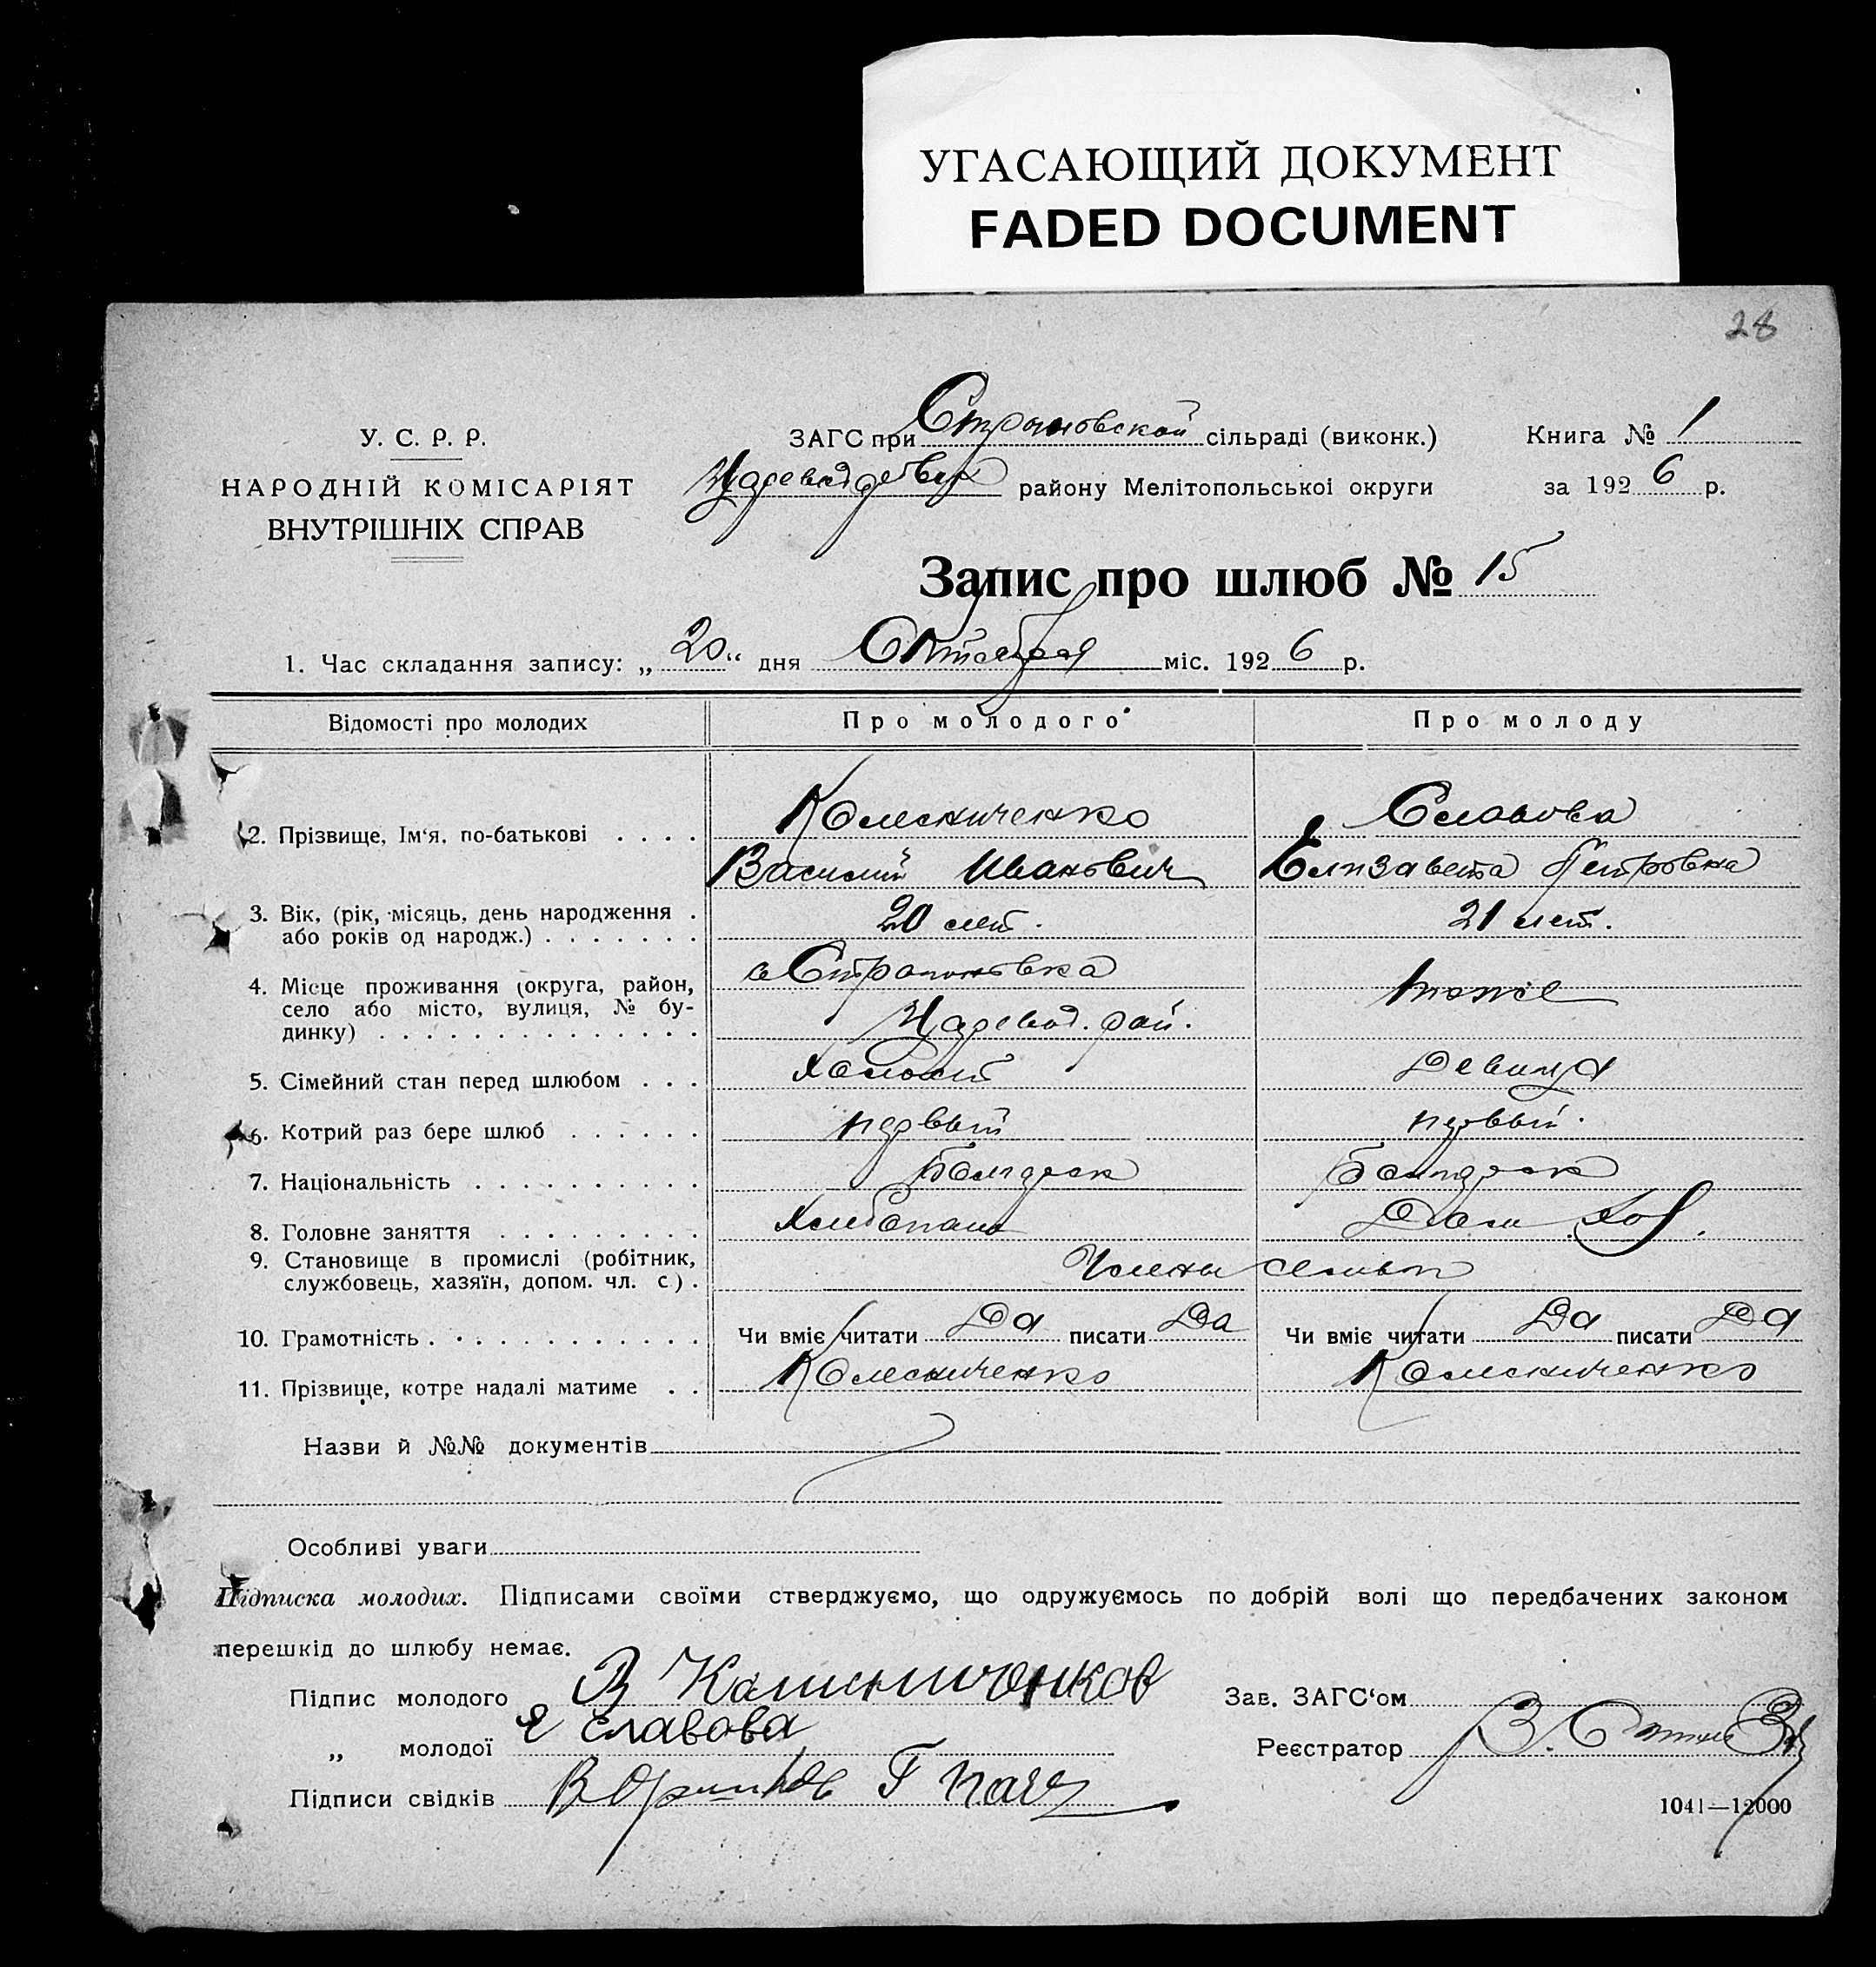 УГАСАЮЩИЙ ДОКУМЕНТ
FADED DOCUMENT
28
У. С. Р. Р.
НАРОДНІЙ КОМІСАРІЯТ
ВНУТРІШНІХ СПРАВ
ЗАГС при сільраді (виконк.) Книга № 1
району Мелітопольської округи за 1926 р.
Запис про шлюб № 15
1. Час складання запису: „ 20 “ дня Октября міс. 1926 р.
Відомості про молодих Про молодого Про молоду
2. Прізвище, Ім‘я, по-батькові . . . . Колесниченко Славова
Василий Иванович Елизавета Петровна
3. Вік, (рік, місяць, день народження .
або років од народж.) . . . . . . . 20 лет. 21 лет.
4. Місце проживання (округа, район,
село або місто, вулиця, № бу-
динку) . . . . . . . . . . . . . . Царевод. рай. тоже
5. Сімейний стан перед шлюбом . . . Холост Девица
6. Котрий раз бере шлюб . . . . . . первый первый.
7. Національність . . . . . . . . . .
8. Головне заняття . . . . . . . . . Хлебопаш Дом. Хоз.
9. Становище в промислі (робітник,
службовець, хазяїн, допом. чл. с.) . Члены семьи
10. Грамотність . . . . . . . . . . . . Чи вміє читати Да писати Да Чи вміє читати Да писати Да
11. Прізвище, котре надалі матиме . . Колесниченко Колесниченко
Назви й №№ документів
Особливі уваги
Підписка молодих. Підписами своїми стверджуємо, що одружуємось по добрій волі що передбачених законом
перешкід до шлюбу немає.
Підпис молодого В Зав. ЗАГС‘ом
„ молодої Славова Реєстратор
Підписи свідків
1041—12000